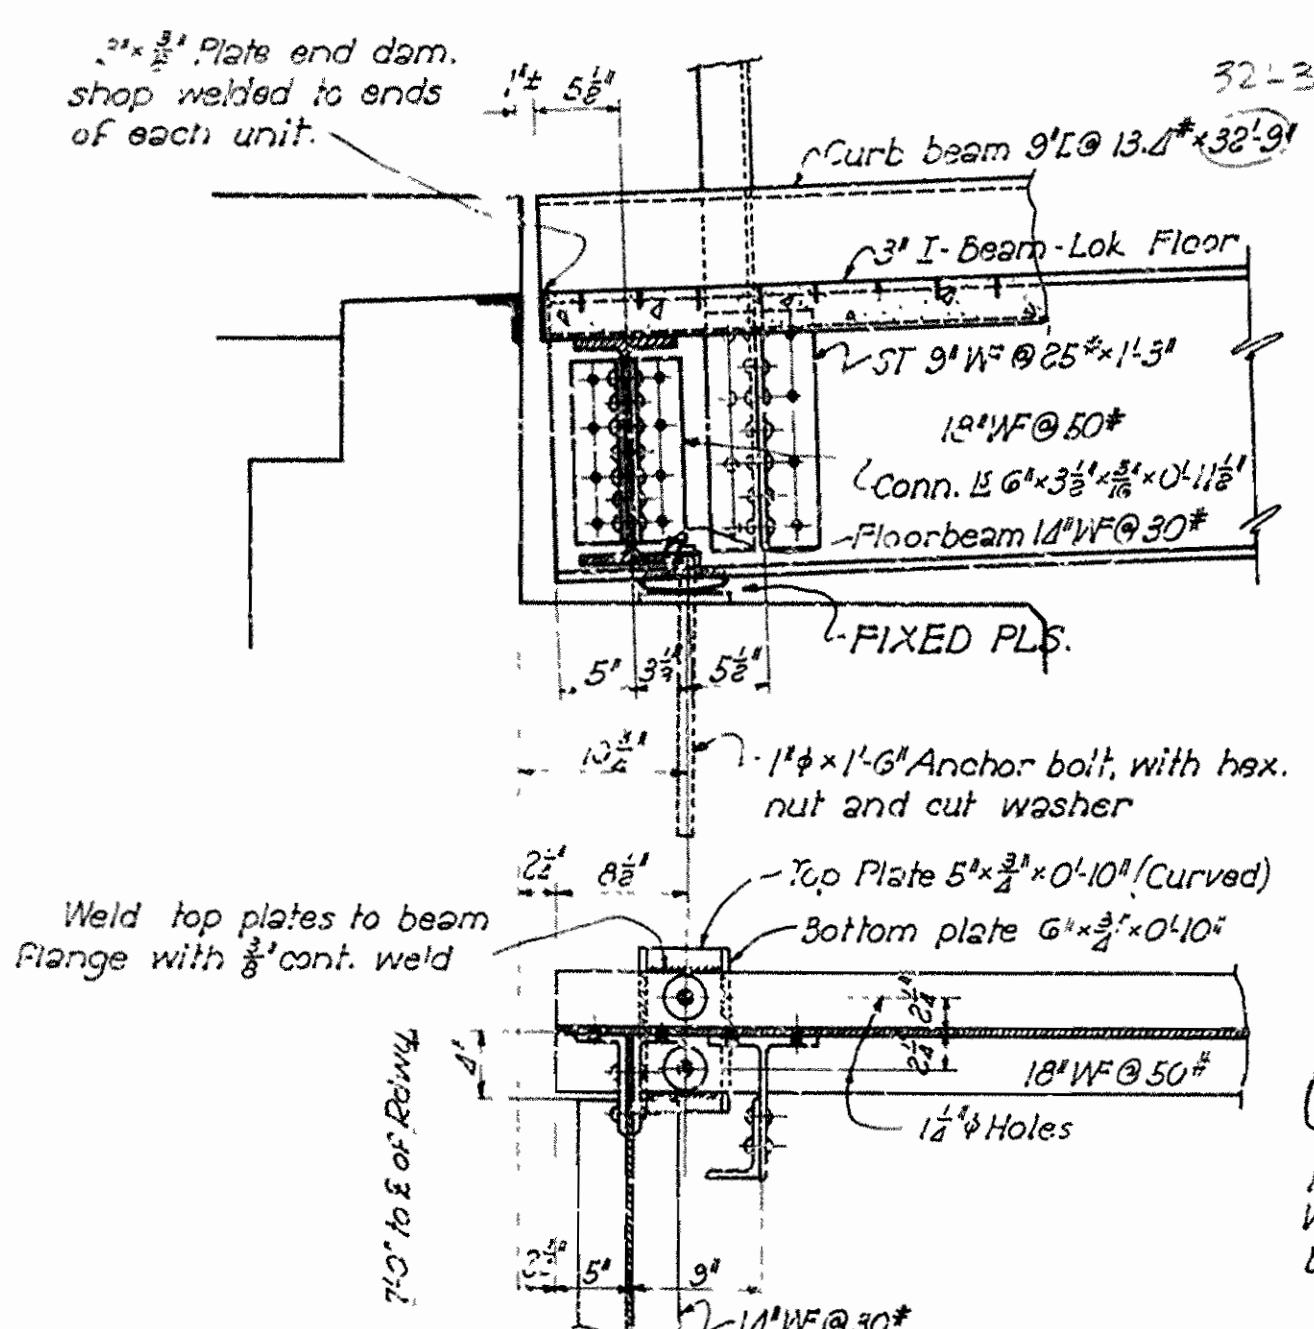 2"× 3/8" Plate end dam.
shop welded to ends
of each unit.
1"± 5 1/2"
32'-3
Curb beam 9"[@ 13.4# × 32'-9"
3" I-Beam-Lok Floor
ST 9" WF @ 25# × 1'-3"
18" WF @ 50#
Conn. Ls 6" × 3 1/2" × 5/16 × 0'-11 1/2"
Floorbeam 14" WF @ 30#
FIXED PLS.
5" 3 1/2" 5 1/2"
10 3/4"
1"ϕ × 1'-6" Anchor bolt, with hex.
nut and cut washer
2 1/4" 8 1/2"
Top Plate 5" × 3/4" × 0'-10" (Curved)
Bottom plate 6" × 3/4" × 0'-10"
Weld top plates to beam
flange with 3/8" cont. weld
2 1/4"
2 1/4"
4"
18" WF @ 50#
1 1/4"ϕ Holes
7'-0" to ℄ of Rdwy.
5" 9"
14" WF @ 30#